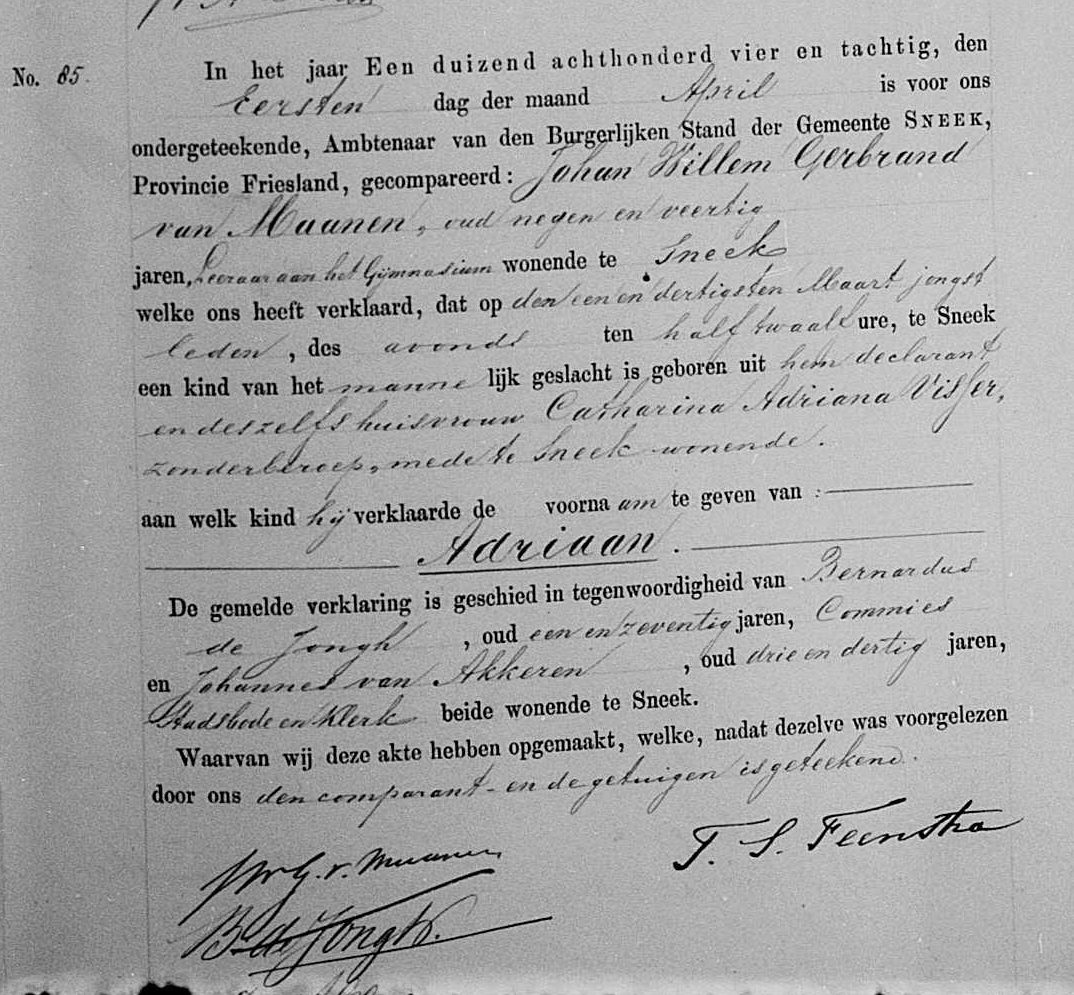 No. 85.
In het jaar Een duizend achthonderd vier en tachtig, den
Eersten dag der maand April is voor ons
ondergeteekende, Ambtenaar van den Burgerlijken Stand der Gemeente SNEEK,
Provincie Friesland, gecompareerd: Johan Willem Gerbrand
van Maanen, oud negen en veertig
jaren, Leeraar aan het Gijmnasium wonende te Sneek
welke ons heeft verklaard, dat op den een en dertigsten Maart jongst
leden, des avonds ten half twaalf ure, te Sneek
een kind van het manne lijk geslacht is geboren uit hem declarant
en deszelfs huisvrouw Catharina Adriana Visser,
zonder beroep, mede te Sneek wonende.
aan welk kind hij verklaarde de voorna am te geven van :
Adriaan.
De gemelde verklaring is geschied in tegenwoordigheid van Bernardus
de Jongh, oud een en zeventig jaren, Commies
en Johannes van Akkeren, oud drie en dertig jaren,
Stadsbode en Klerk beide wonende te Sneek.
Waarvan wij deze akte hebben opgemaakt, welke, nadat dezelve was voorgelezen
door ons den comparant en de getuigen is geteekend.
T. S. Feenstra
JWG. v. Maanen
B. de Jongh.